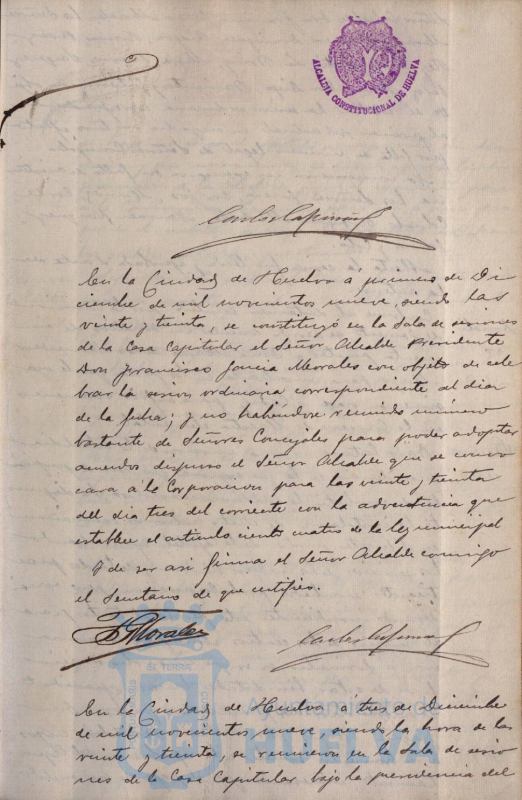 ALCALDIA CONSTITUCIONAL DE HUELVA
En la Ciudad de Huelva á primero de Di
ciembre de mil novecientos nueve, siendo las
veinte y treinta, se constituyó en la Sala de sesiones
de la Casa Capitular el Señor Alcalde Presidente
Don Francisco García Morales con objeto de cele
brar la sesion ordinaria correspondiente al dia
de la fecha; y no habiéndose reunido número
bastante de Señores Concejales para poder adoptar
acuerdos dispuso el Señor Alcalde que se convo
cara á la Corporacion para las veinte y treinta
del dia tres del corriente con la advertencia que
establece el artículo ciento cuatro de la ley municipal
Y de ser asi firma el Señor Alcalde conmigo
el Secretario de que certifico.
F G Morales
En la Ciudad de Huelva á tres de Diciembre
de mil novecientos nueve, siendo la hora de las
veinte y treinta, se reunieron en la Sala de sesio
nes de la Casa Capitular bajo la presidencia del
Ayuntamiento de
HUELVA